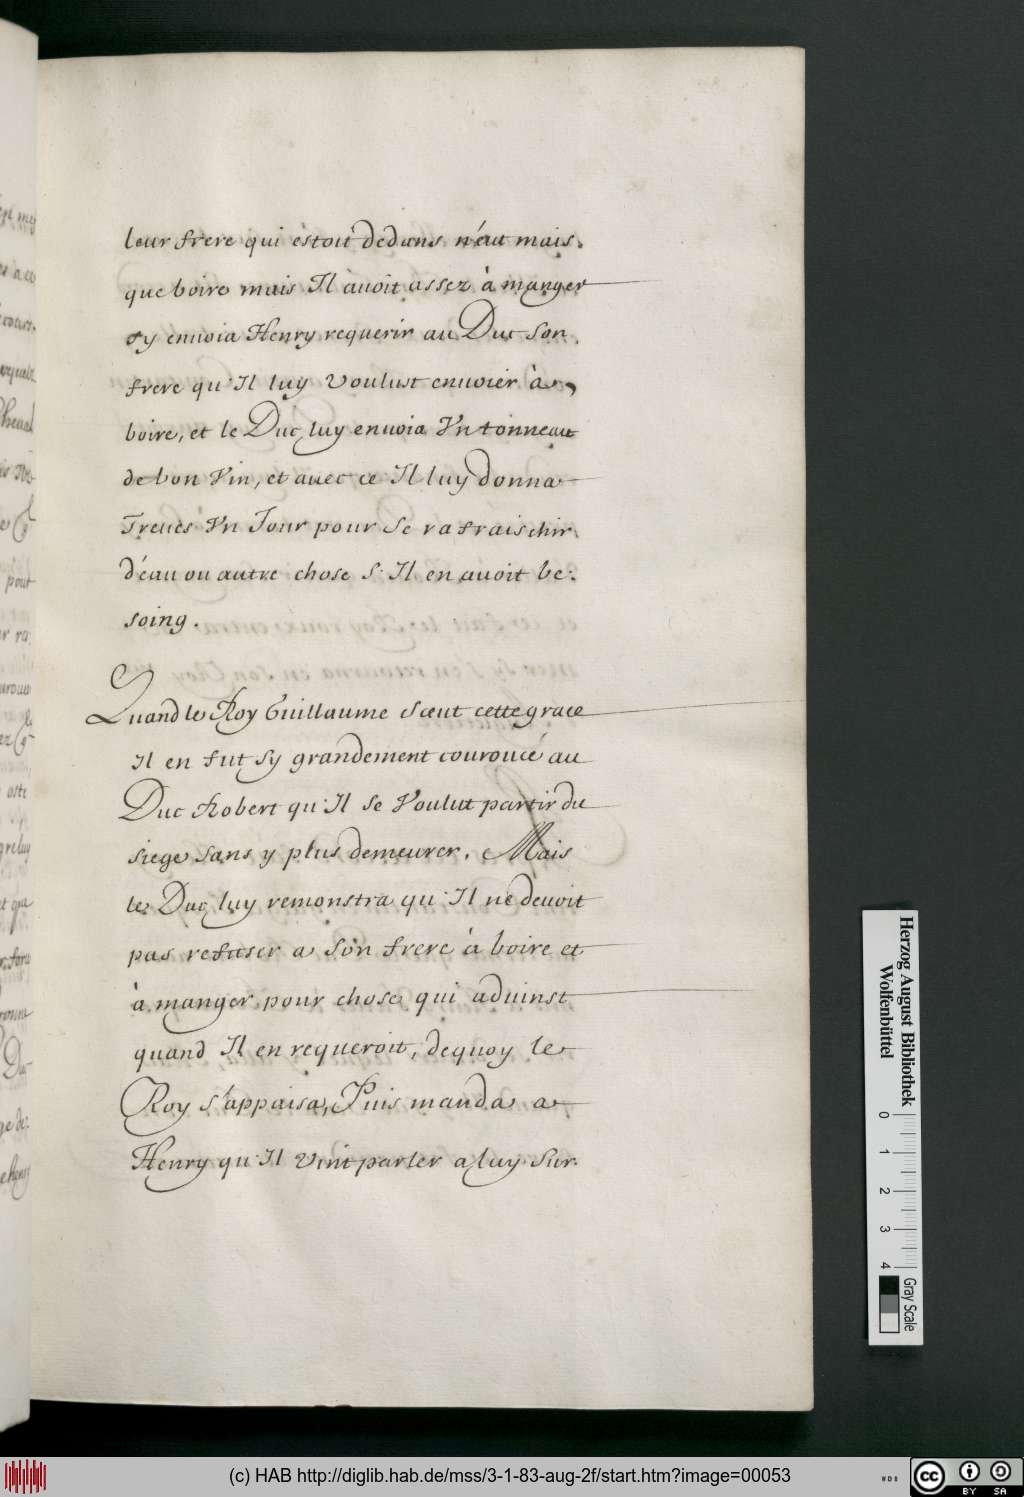 leur frere qui éstoit dedans n'éut mais.
que boire mais Il àuoit assez à manger
sy enuoia Henry requerir au Duc son
frere qu'Il luy voulust enuoier à
boire, et le Duc luy enuoia Vn tonneau
de bon Vin, et auec ce Il luy donna
Treues Vn Jour pour se rafraischir
d'éau ou autre chose s'Il en auoit be:
soing.
Quand le Roy Guillaume sceut cette grace
Il en fut sy grandement couroucé au
Duc Robert qu'Il se Voulut partir du
siege sans y plus demeurer. Mais
le Duc luy remonstra qu'Il ne deuoit
pas refuser a son frere à boire et
à manger pour chose qui aduinst
quand Il en requeroit, dequoy le
Roy s'appaisa, Puis manda a
Henry qu'Il vint parler a luy sur.
Herzog August Bibliothek
Wolfenbüttel
0 1 2 3 4
Gray Scale
(c) HAB http://diglib.hab.de/mss/3-1-83-aug-2f/start.htm?image=00053
cc BY SA